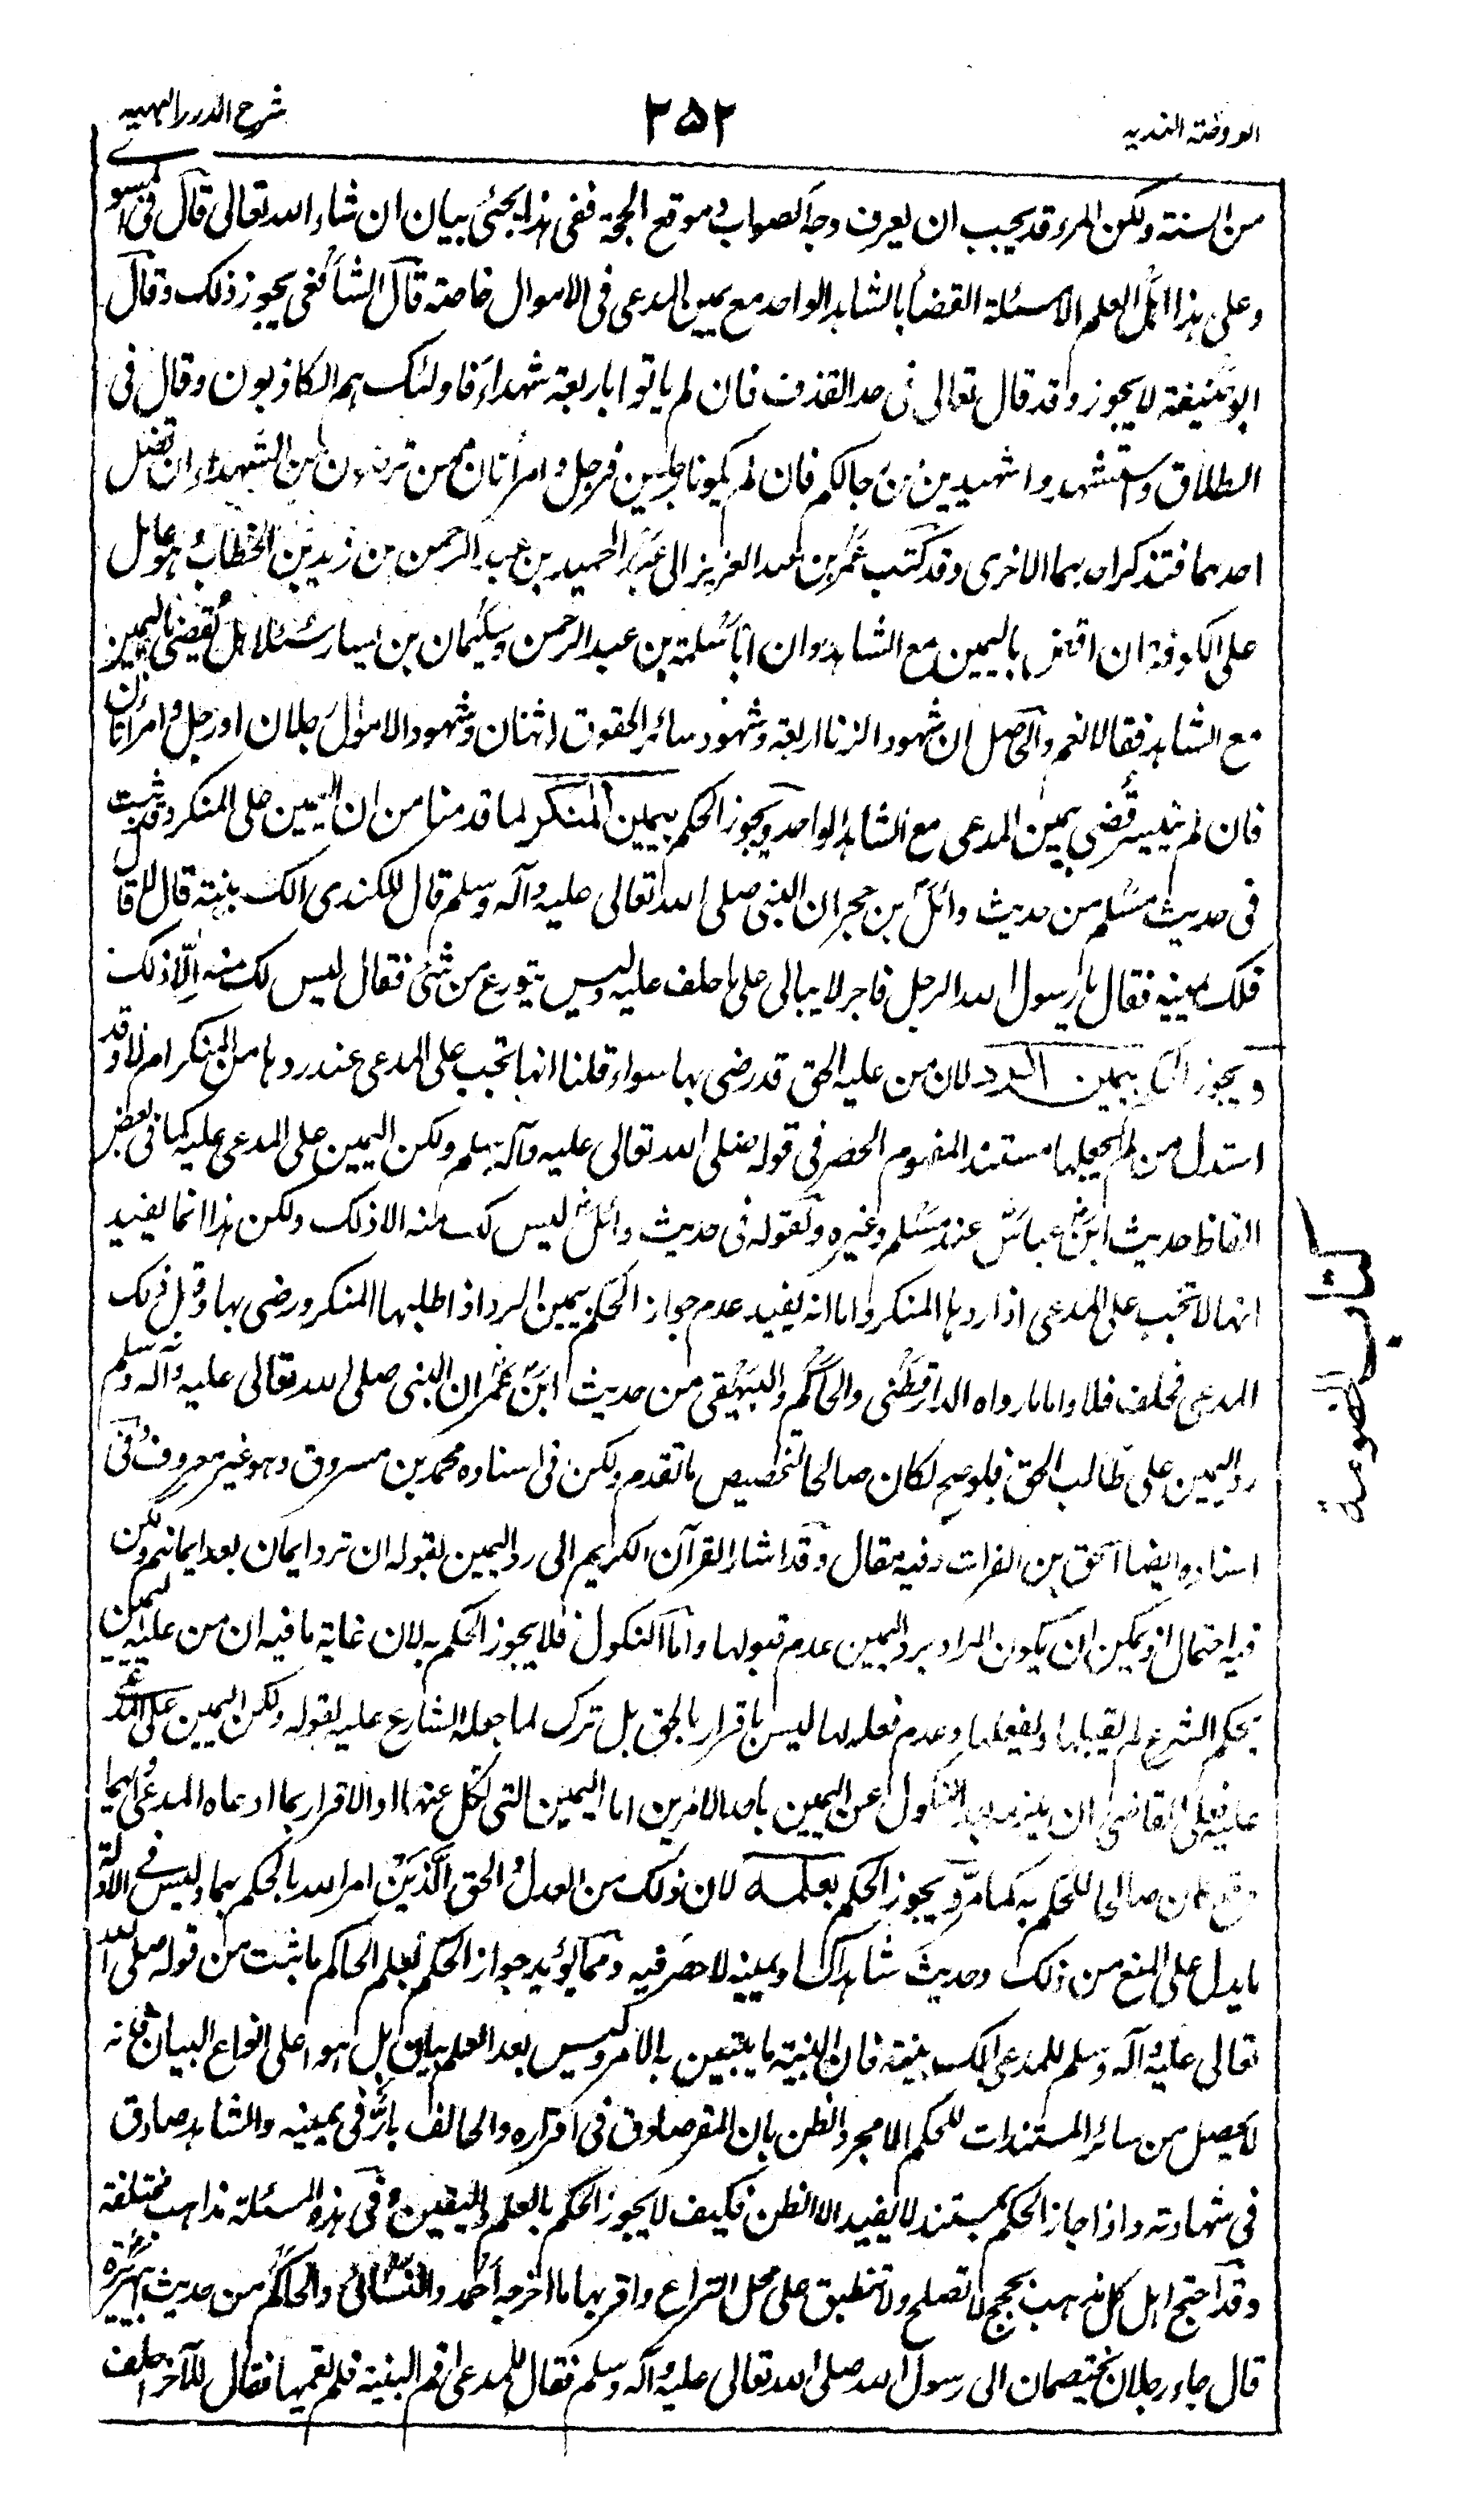 الروضة الندية
٢٥٢
شرح الدرر البهية
من السنة ولكن المرء قد يحب ان يعرف وجه الصواب وموقع الحجة ففي هذا يجئ بيان ان شاء الله تعالى قال في المسو
وعلى هذا اهل العلم الا مسئلة القضأ بالشاهد الواحد مع يمين المدعي في الاموال خاصة قال الشافعي يجوز ذلك وقال
ابو حنيفة لا يجوز وقد قال تعالى في حد القذف فان لم ياتوا باربعة شهداء فاولئك هم الكاذبون وقال في
الطلاق واستشهدوا شهيدين من رجالكم فان لم يكونا رجلين فرجل وامرأتان ممن ترضون من الشهداء ان تضل
احدهما فتذكر احدهما الاخرى وقد كتب عمر بن عبد العزيز الى عبد الحميد بن عبد الرحمن بن زيد بن الخطاب وهو عامل
على الكوفة ان اقض باليمين مع الشاهد وان ابا سلمة بن عبد الرحمن وسليمان بن يسار سئلا هل يقضى باليمين
مع الشاهد فقالا نعم والحاصل ان شهود الزنا اربعة وشهود سائر الحقوق اثنان وشهود الاموال رجلان او رجل وامرأتان
فان لم يتيسر قضي بيمين المدعي مع الشاهد الواحد ويجوز الحكم بيمين المنكر لما قدمنا من ان اليمين على المنكر وقد ثبت
في حديث مسلم من حديث وائل بن حجر ان النبي صلى الله تعالى عليه وآله وسلم قال للكندي الك بينة قال لا قال
فلك يمينه فقال يا رسول الله الرجل فاجر لا يبالي على ما حلف عليه وليس يتورع من شئ فقال ليس لك منه الا ذلك
ويجوز الحكم بيمين الرد لان من عليه الحق قد رضي بها سواء قلنا انها تجب على المدعي عند ردها من المنكر ام لا وقد
استدل من لم يجعلها مستندا لمفهوم الحصر في قوله صلى الله تعالى عليه وآله وسلم ولكن اليمين على المدعى عليه كما في بعض
الفاظ حديث ابن عباس عند مسلم وغيره ولقوله في حديث وائل ليس لك منه الا ذلك ولكن هذا انما يفيد
انها لا تجب على المدعي اذا ردها المنكر واما انه يفيد عدم جواز الحكم بيمين الرد اذا طلبها المنكر ورضي بها وقبل ذلك
المدعي فحلف فلا واما ما رواه الدارقطني والحاكم والبيهقي من حديث ابن عمر ان النبي صلى الله تعالى عليه وآله وسلم
رد اليمين على طالب الحق فلو صح لكان صالحا لتخصيص ما تقدم ولكن في اسناده محمد بن مسروق وهو غير معروف وفي
اسناده ايضا اسحق بن الفرات وفيه مقال وقد اشار القرآن الكريم الى رد اليمين بقوله ان ترد ايمان بعد ايمانهم ولكن
فيه احتمال اذ يمكن ان يكون المراد برد اليمين عدم قبولها واما النكول فلا يجوز الحكم به لان غاية ما فيه ان من عليه اليمين
بحكم الشرع لم يقبلها ويفعلها وعدم فعله لها ليس باقرار بالحق بل ترك لما جعله الشارع عليه بقوله ولكن اليمين على المدعى
عليه فعلى القاضي ان يلزمه بعد النكول عن اليمين باحد الامرين اما اليمين التي نكل عنها او الاقرار بما ادعاه المدعي وايهما
وقع كان صالحا للحكم به كما مر ويجوز الحكم بعلمه لان ذلك من العدل والحق الذين امر الله بالحكم بهما وليس في الادلة
ما يدل على المنع من ذلك وحديث شاهداك او يمينه لا حصر فيه ومما يؤيد جواز الحكم بعلم الحاكم ما ثبت من قوله صلى الله
تعالى عليه وآله وسلم للمدعي الك بينة فان البينة ما يتبين به الامر وليس بعد العلم بيان بل هو اعلى انواع البيان فانه
لا يحصل من سائر المستندات للحكم الا مجرد الظن بان المقر صادق في اقراره والحالف بار في يمينه والشاهد صادق
في شهادته واذا جاز الحكم بمستند لا يفيد الا الظن فكيف لا يجوز الحكم بالعلم واليقين وفي هذه المسئلة مذاهب مختلفة
وقد احتج اهل كل مذهب بحجج لا تصلح ولا تنطبق على محل النزاع واقربها ما اخرجه احمد والنسائي والحاكم من حديث ابي هريرة
قال جاء رجلان يختصمان الى رسول الله صلى الله تعالى عليه وآله وسلم فقال للمدعي اقم البينة فلم يقمها فقال للآخر احلف
كتاب الخصومة